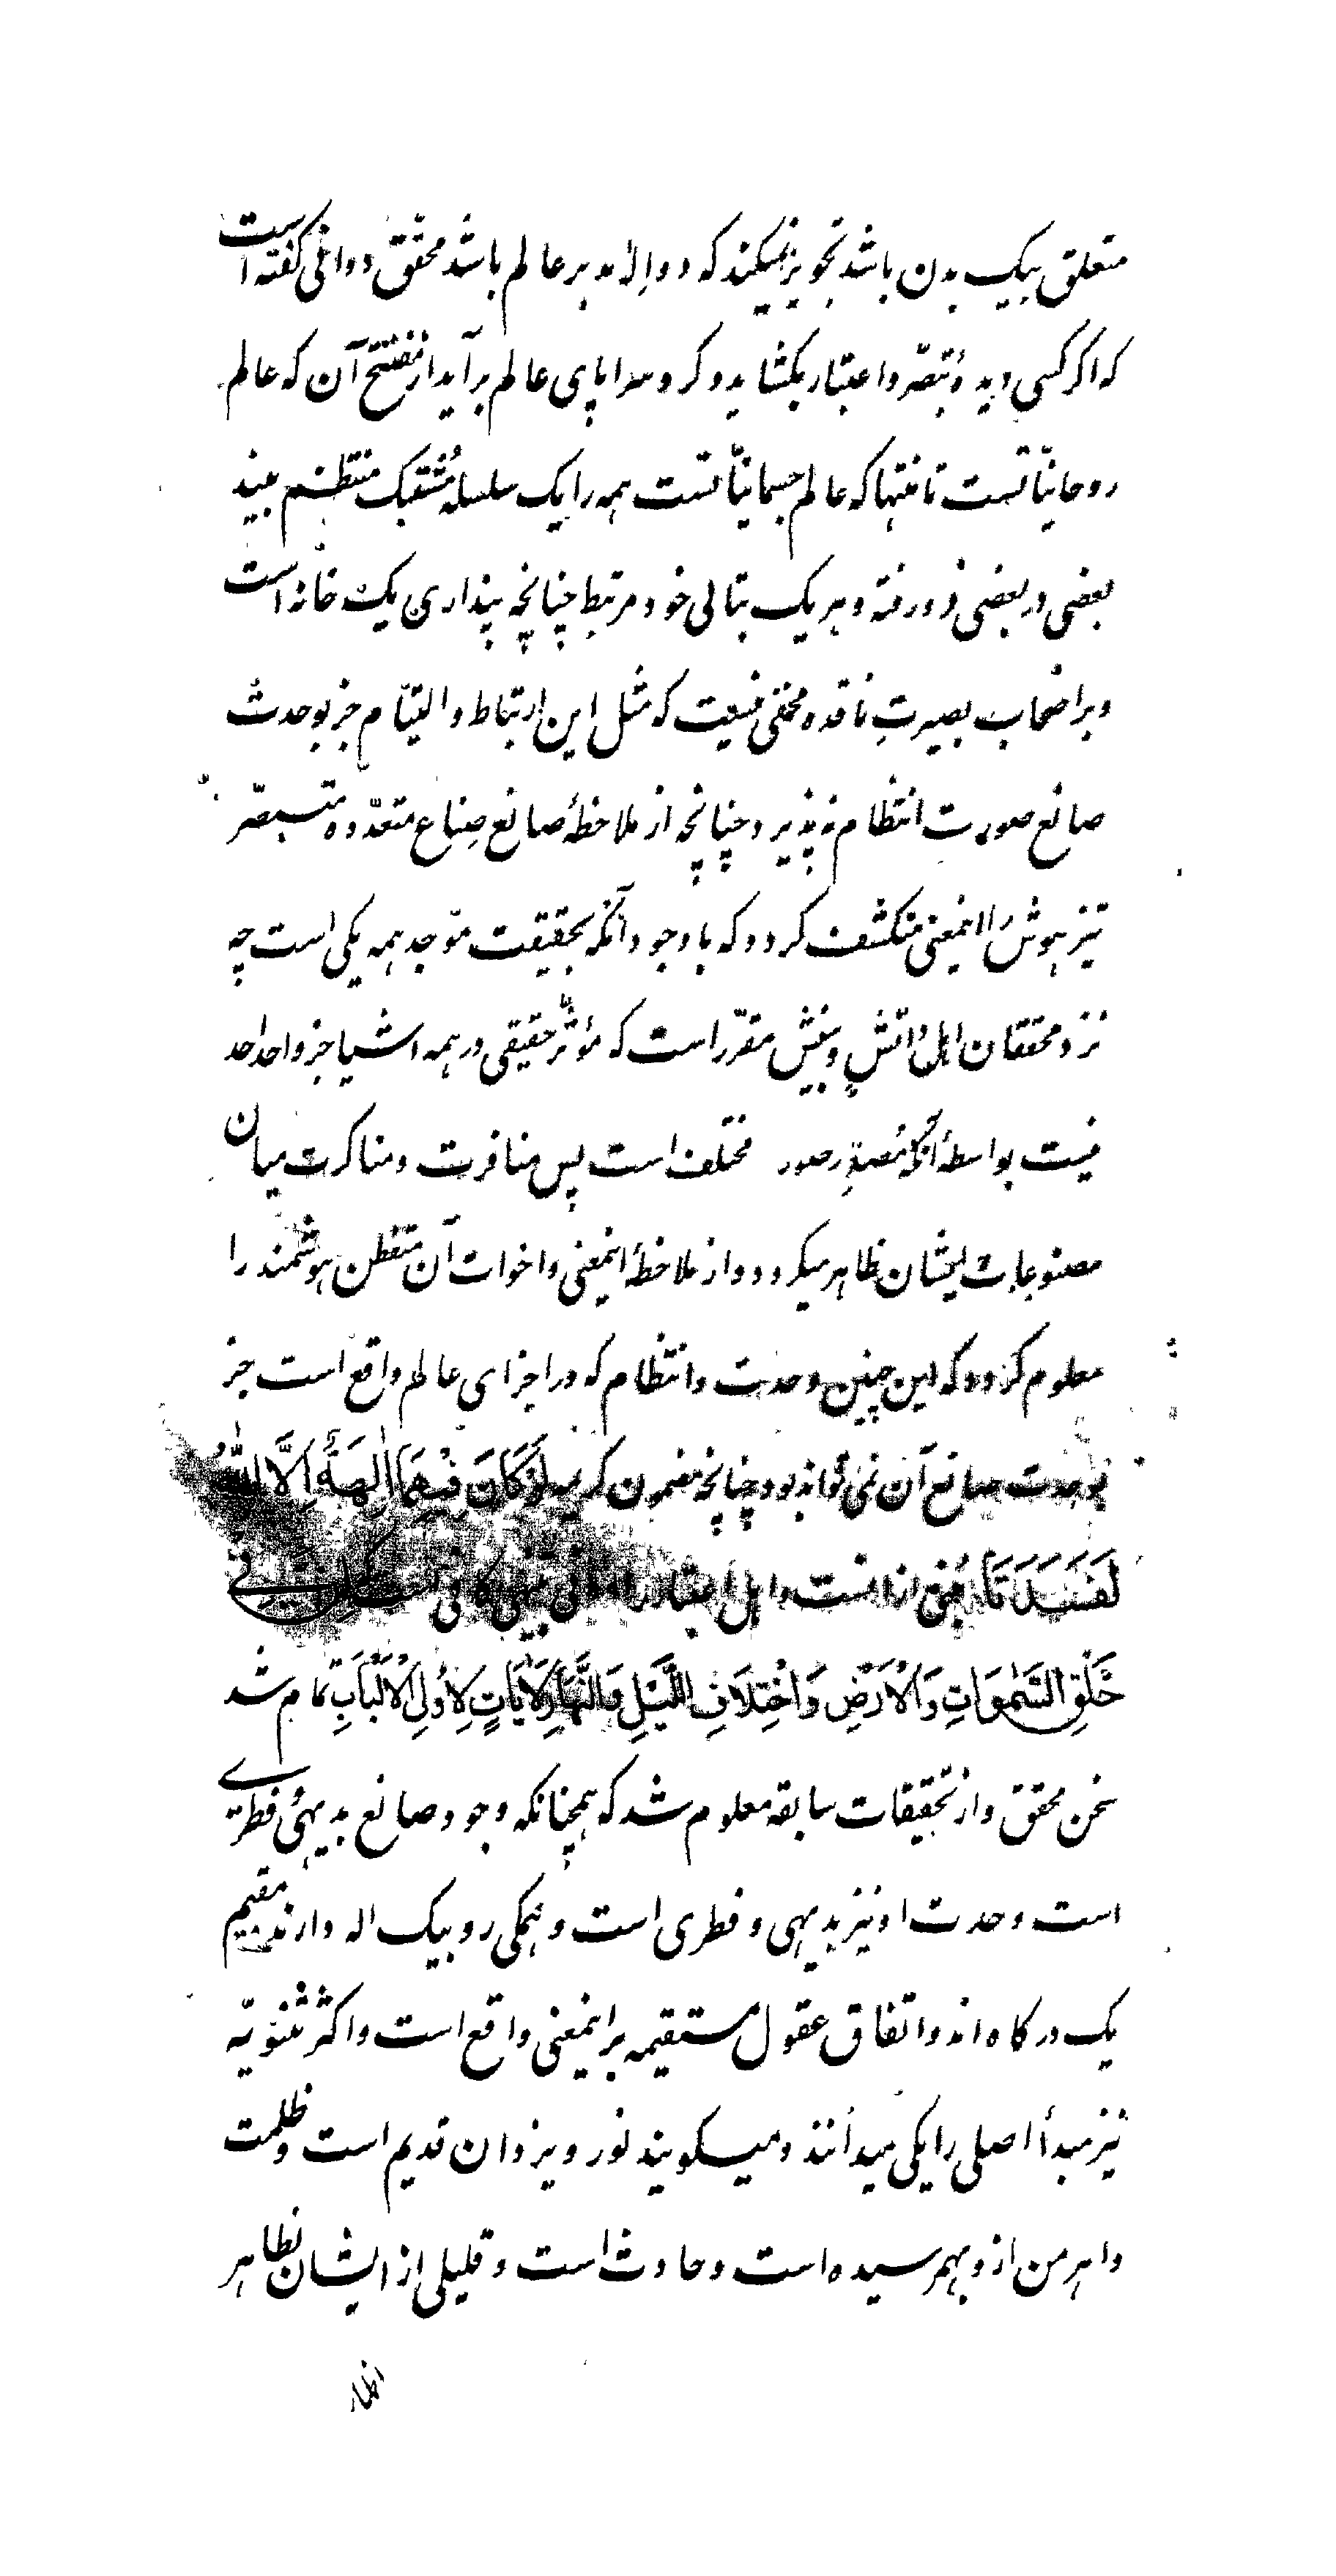 متعلق بیک بدن باشد تجویز نمیکند که دو اله مدبر عالم باشد محقق دوانی گفته است
که اکر کسی دیدهٔ تبصّر و اعتبار بکشاید و کرد سراپای عالم برآید از مفتتح آن که عالم
روحانیّاتست تا منتها که عالم جسمانیّاتست همه را یک سلسله مُشتبک منتظم بیند
بعضی در بعضی فرو رفته و هر یک بتالی خود مرتبط چنانچه پنداری یک خانه است
و بر اصحاب بصیرتِ ناقده مخفی نیست که مثل این ارتباط و التیّام جز بوحدت
صانع صورت انتظام نپذیرد چنانچه از ملاحظهٔ صانع صِناع متعدّده متبصّر
تیز هوش را اینمعنی منکشف کردد که با وجود آنکه بحقیقت موّجد همه یکی است چه
نزد محققان اهل دانش و بینش مقرّر است که مؤثّر حقیقی در همه اشیا جز واحد احد
نیست بواسطهٔ آنکه مَصدرِ صور مختلف است پس منافرت و مناکرت میان
مصنوعات ایشان ظاهر میکردد و از ملاحظهٔ اینمعنی و اخوات آن متفطن هوشمند را
معلوم کردد که این چنین وحدت و انتظام که در اجزای عالم واقع است جز
بوحدت صانع آن نمی تواند بود چنانچه مضمون کریمه لَوْ كَانَ فِيْهِمَا اٰلِهَةٌ اِلَّا اللّٰهُ
لَفَسَدَتَا مُنبی از انست و اهل اعتبار را ادنی تنبیهی کافی است اِنَّ فِي
خَلْقِ السَّمٰوَاتِ وَالْاَرْضِ وَاخْتِلَافِ اللَّيْلِ وَالنَّهَارِ لَاٰيَاتٍ لِاُولِي الْاَلْبَابِ تمام شد
سخن محقق و از تحقیقات سابقه معلوم شد که همچنانکه وجود صانع بدیهیٔ فطری
است وحدت او نیز بدیهی و فطری است و همکی رو بیک اله دارند مقیم
یک درکاه اند و اتفاق عقول مستقیمه بر اینمعنی واقع است و اکثر ثنویّه
نیز مبدأ اصلی را یکی میدانند و میکویند نور و یزدان قدیم است و ظلمت
و اهرمن ازو بهمرسیده است و حادث است و قلیلی از ایشان بظاهر
اظهار